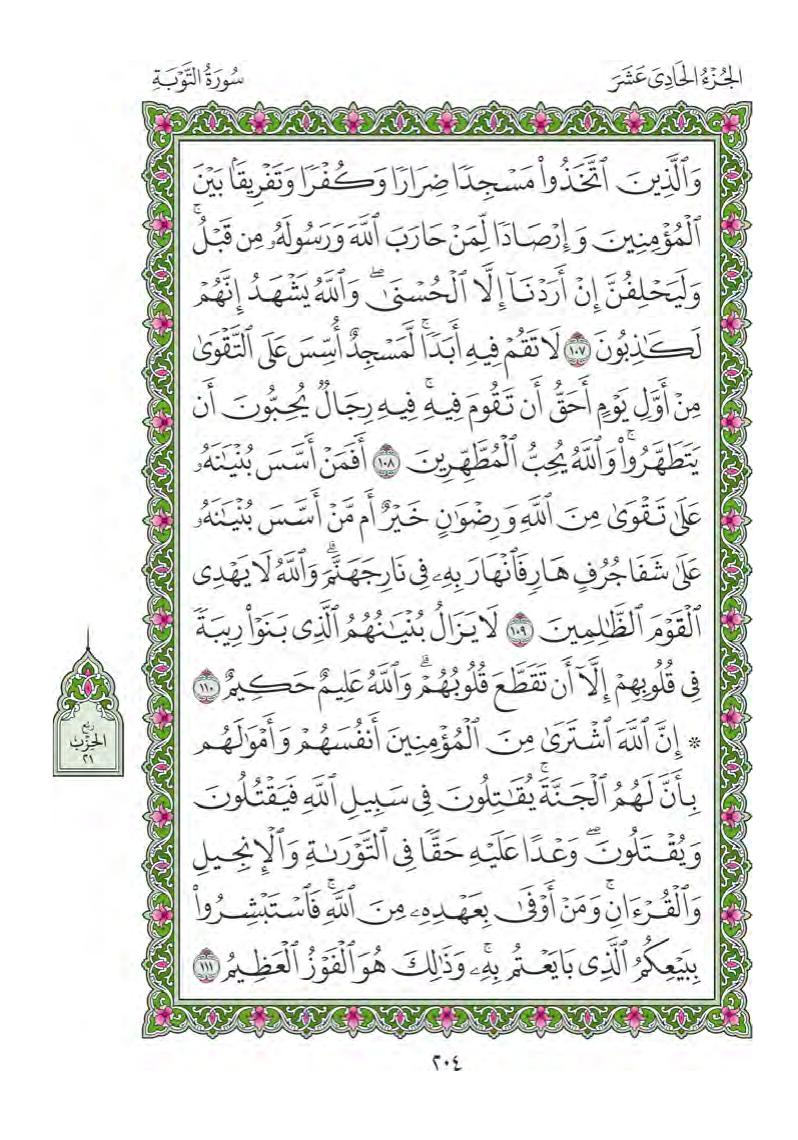 الجُزْءُ الحَادِىَ عَشَرَ
سُورَةُ التَّوْبَةِ
وَٱلَّذِينَ ٱتَّخَذُوا۟ مَسْجِدًا ضِرَارًا وَكُفْرًا وَتَفْرِيقًۢا بَيْنَ
ٱلْمُؤْمِنِينَ وَإِرْصَادًا لِّمَنْ حَارَبَ ٱللَّهَ وَرَسُولَهُۥ مِن قَبْلُ ۚ
وَلَيَحْلِفُنَّ إِنْ أَرَدْنَآ إِلَّا ٱلْحُسْنَىٰ ۖ وَٱللَّهُ يَشْهَدُ إِنَّهُمْ
لَكَـٰذِبُونَ ١٠٧ لَا تَقُمْ فِيهِ أَبَدًا ۚ لَّمَسْجِدٌ أُسِّسَ عَلَى ٱلتَّقْوَىٰ
مِنْ أَوَّلِ يَوْمٍ أَحَقُّ أَن تَقُومَ فِيهِ ۚ فِيهِ رِجَالٌ يُحِبُّونَ أَن
يَتَطَهَّرُوا۟ ۚ وَٱللَّهُ يُحِبُّ ٱلْمُطَّهِّرِينَ ١٠٨ أَفَمَنْ أَسَّسَ بُنْيَـٰنَهُۥ
عَلَىٰ تَقْوَىٰ مِنَ ٱللَّهِ وَرِضْوَٰنٍ خَيْرٌ أَم مَّنْ أَسَّسَ بُنْيَـٰنَهُۥ
عَلَىٰ شَفَا جُرُفٍ هَارٍ فَٱنْهَارَ بِهِۦ فِى نَارِ جَهَنَّمَ ۗ وَٱللَّهُ لَا يَهْدِى
ٱلْقَوْمَ ٱلظَّـٰلِمِينَ ١٠٩ لَا يَزَالُ بُنْيَـٰنُهُمُ ٱلَّذِى بَنَوْا۟ رِيبَةً
فِى قُلُوبِهِمْ إِلَّآ أَن تَقَطَّعَ قُلُوبُهُمْ ۗ وَٱللَّهُ عَلِيمٌ حَكِيمٌ ١١٠
* إِنَّ ٱللَّهَ ٱشْتَرَىٰ مِنَ ٱلْمُؤْمِنِينَ أَنفُسَهُمْ وَأَمْوَٰلَهُم
بِأَنَّ لَهُمُ ٱلْجَنَّةَ ۚ يُقَـٰتِلُونَ فِى سَبِيلِ ٱللَّهِ فَيَقْتُلُونَ
وَيُقْتَلُونَ ۖ وَعْدًا عَلَيْهِ حَقًّا فِى ٱلتَّوْرَىٰةِ وَٱلْإِنجِيلِ
وَٱلْقُرْءَانِ ۚ وَمَنْ أَوْفَىٰ بِعَهْدِهِۦ مِنَ ٱللَّهِ ۚ فَٱسْتَبْشِرُوا۟
بِبَيْعِكُمُ ٱلَّذِى بَايَعْتُم بِهِۦ ۚ وَذَٰلِكَ هُوَ ٱلْفَوْزُ ٱلْعَظِيمُ ١١١
ربع
الحزب
٢١
٢٠٤